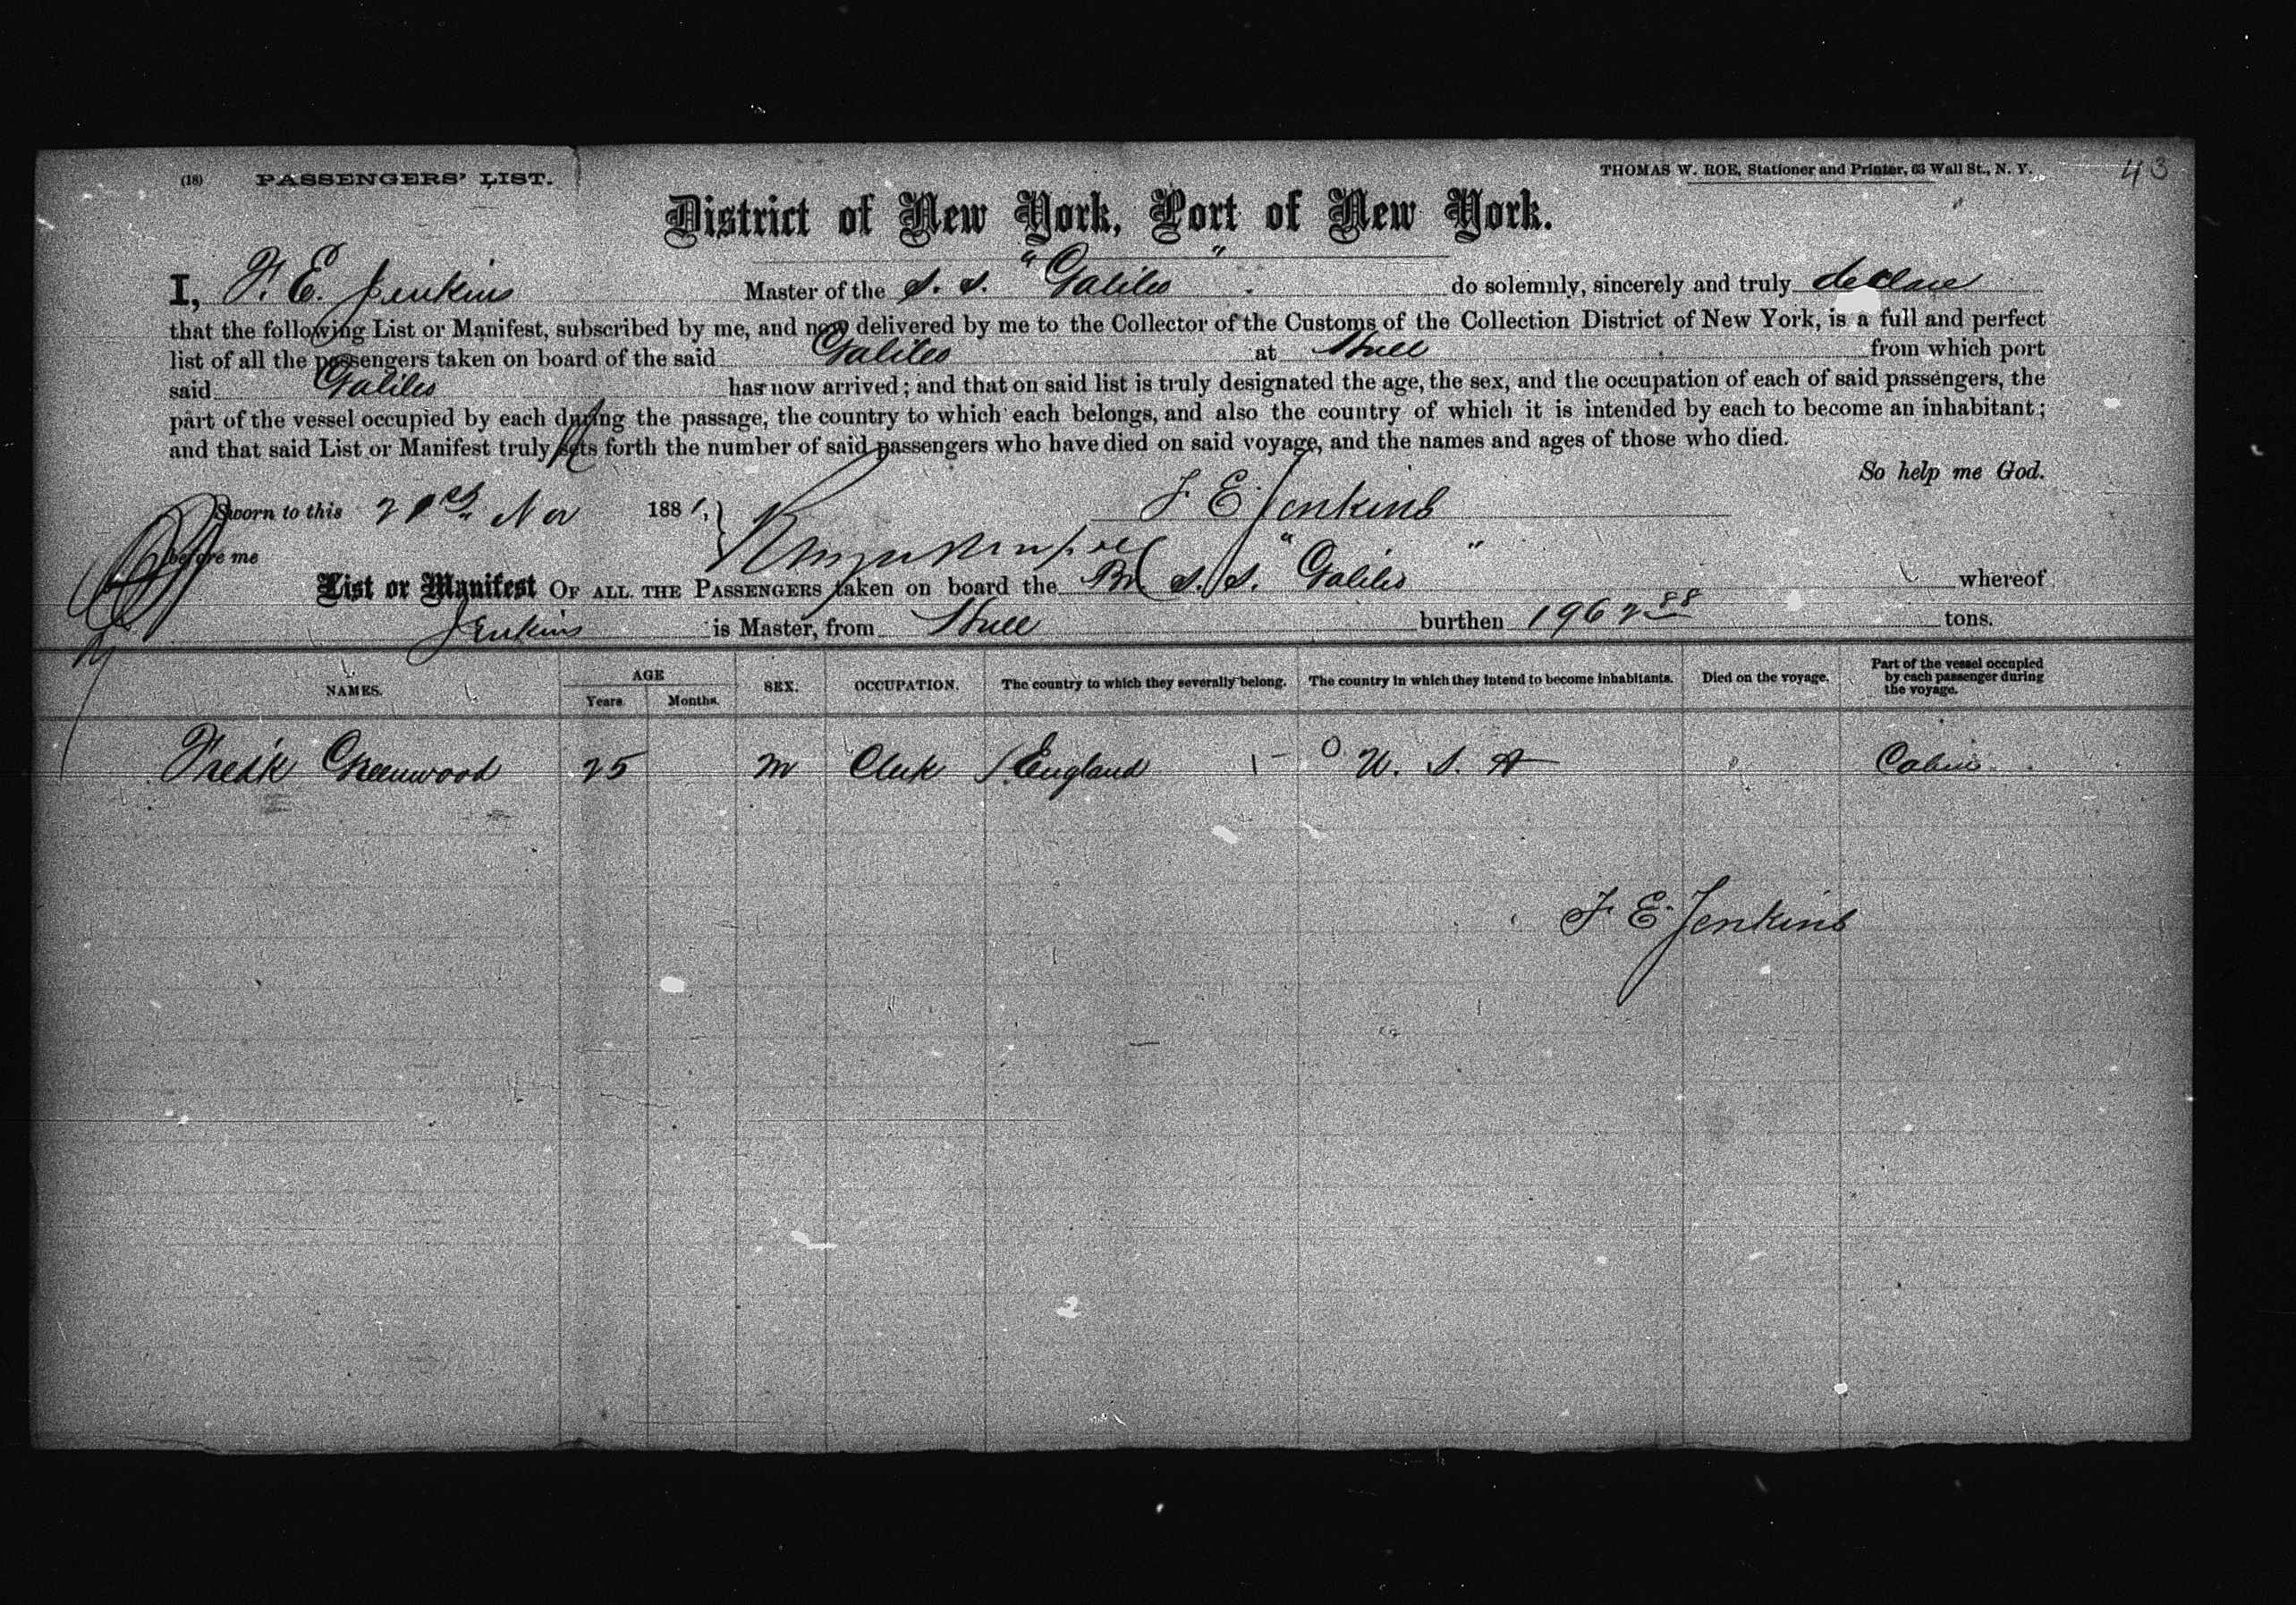 (18) PASSENGERS' LIST. THOMAS W. ROE, Stationer and Printer, 63 Wall St., N. Y. 43
District of New York, Port of New York.
I, F. E. Jenkins Master of the S. S. "Galileo" do solemnly, sincerely and truly declare
that the following List or Manifest, subscribed by me, and now delivered by me to the Collector of the Customs of the Collection District of New York, is a full and perfect
list of all the passengers taken on board of the said Galileo at Hull from which port
said Galileo has now arrived; and that on said list is truly designated the age, the sex, and the occupation of each of said passengers, the
part of the vessel occupied by each during the passage, the country to which each belongs, and also the country of which it is intended by each to become an inhabitant;
and that said List or Manifest truly sets forth the number of said passengers who have died on said voyage, and the names and ages of those who died.
So help me God.
Sworn to this 21st Nov 1881, F E Jenkins
before me
List or Manifest OF ALL THE PASSENGERS taken on board the Br S. S. "Galileo" whereof
Jenkins is Master, from Hull burthen 1962 88 tons.
NAMES. AGE Years Months. SEX. OCCUPATION. The country to which they severally belong. The country in which they intend to become inhabitants. Died on the voyage. Part of the vessel occupied by each passenger during the voyage.
Fredk Greenwood 25 M Clerk England U. S. A " Cabin
F E Jenkins